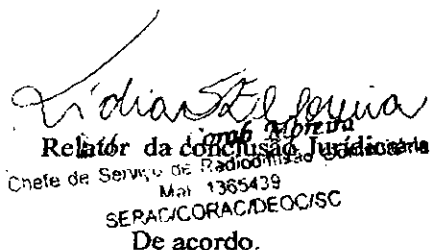 Moreira
Relator da conclusão Jurídica
Chefe de Serviço de Radiodifusão Comunitária
Mat. 1365439
SERAC/CORAC/DEOC/SC
De acordo.